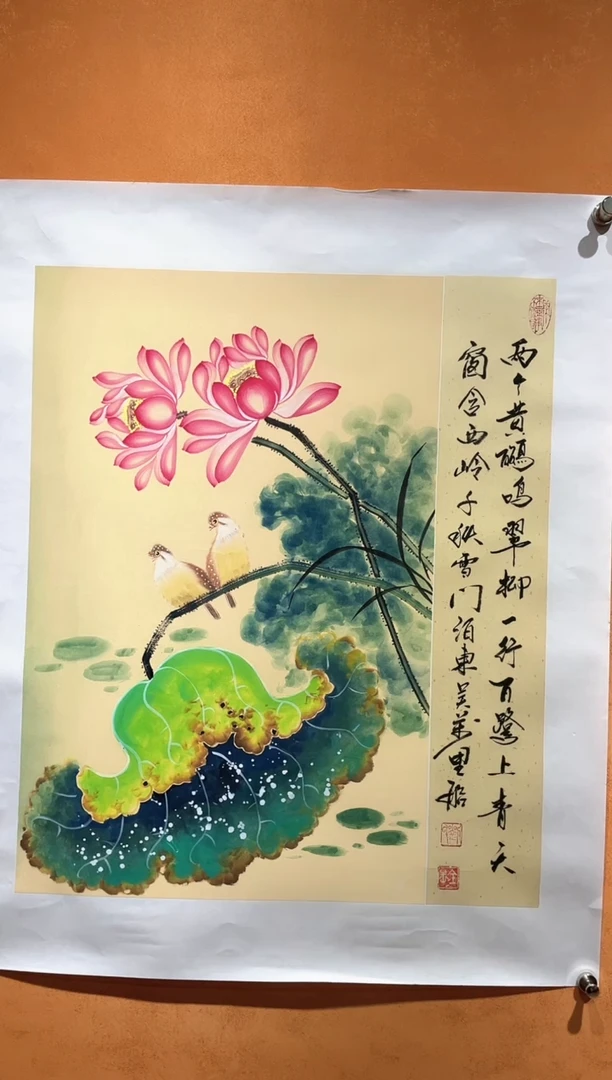 两个黄鹂鸣翠柳一行百鹭上青天
窗含西岭千秋雪门泊東吴萬里船